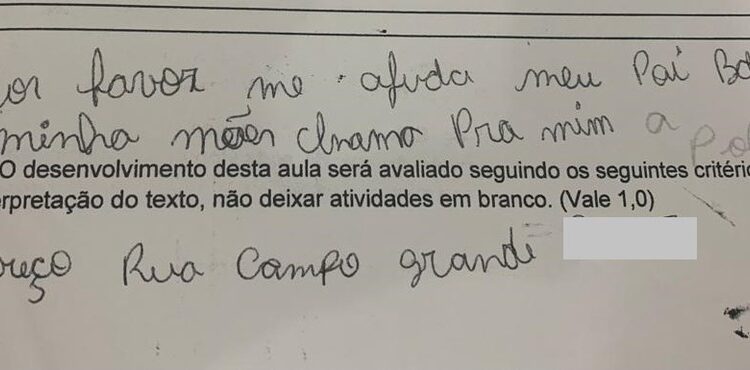 or favor me ajuda meu Pai Ba
minha mães chama Pra mim a Pol
O desenvolvimento desta aula será avaliado seguindo os seguintes critério
erpretação do texto, não deixar atividades em branco. (Vale 1,0)
reço Rua Campo grande